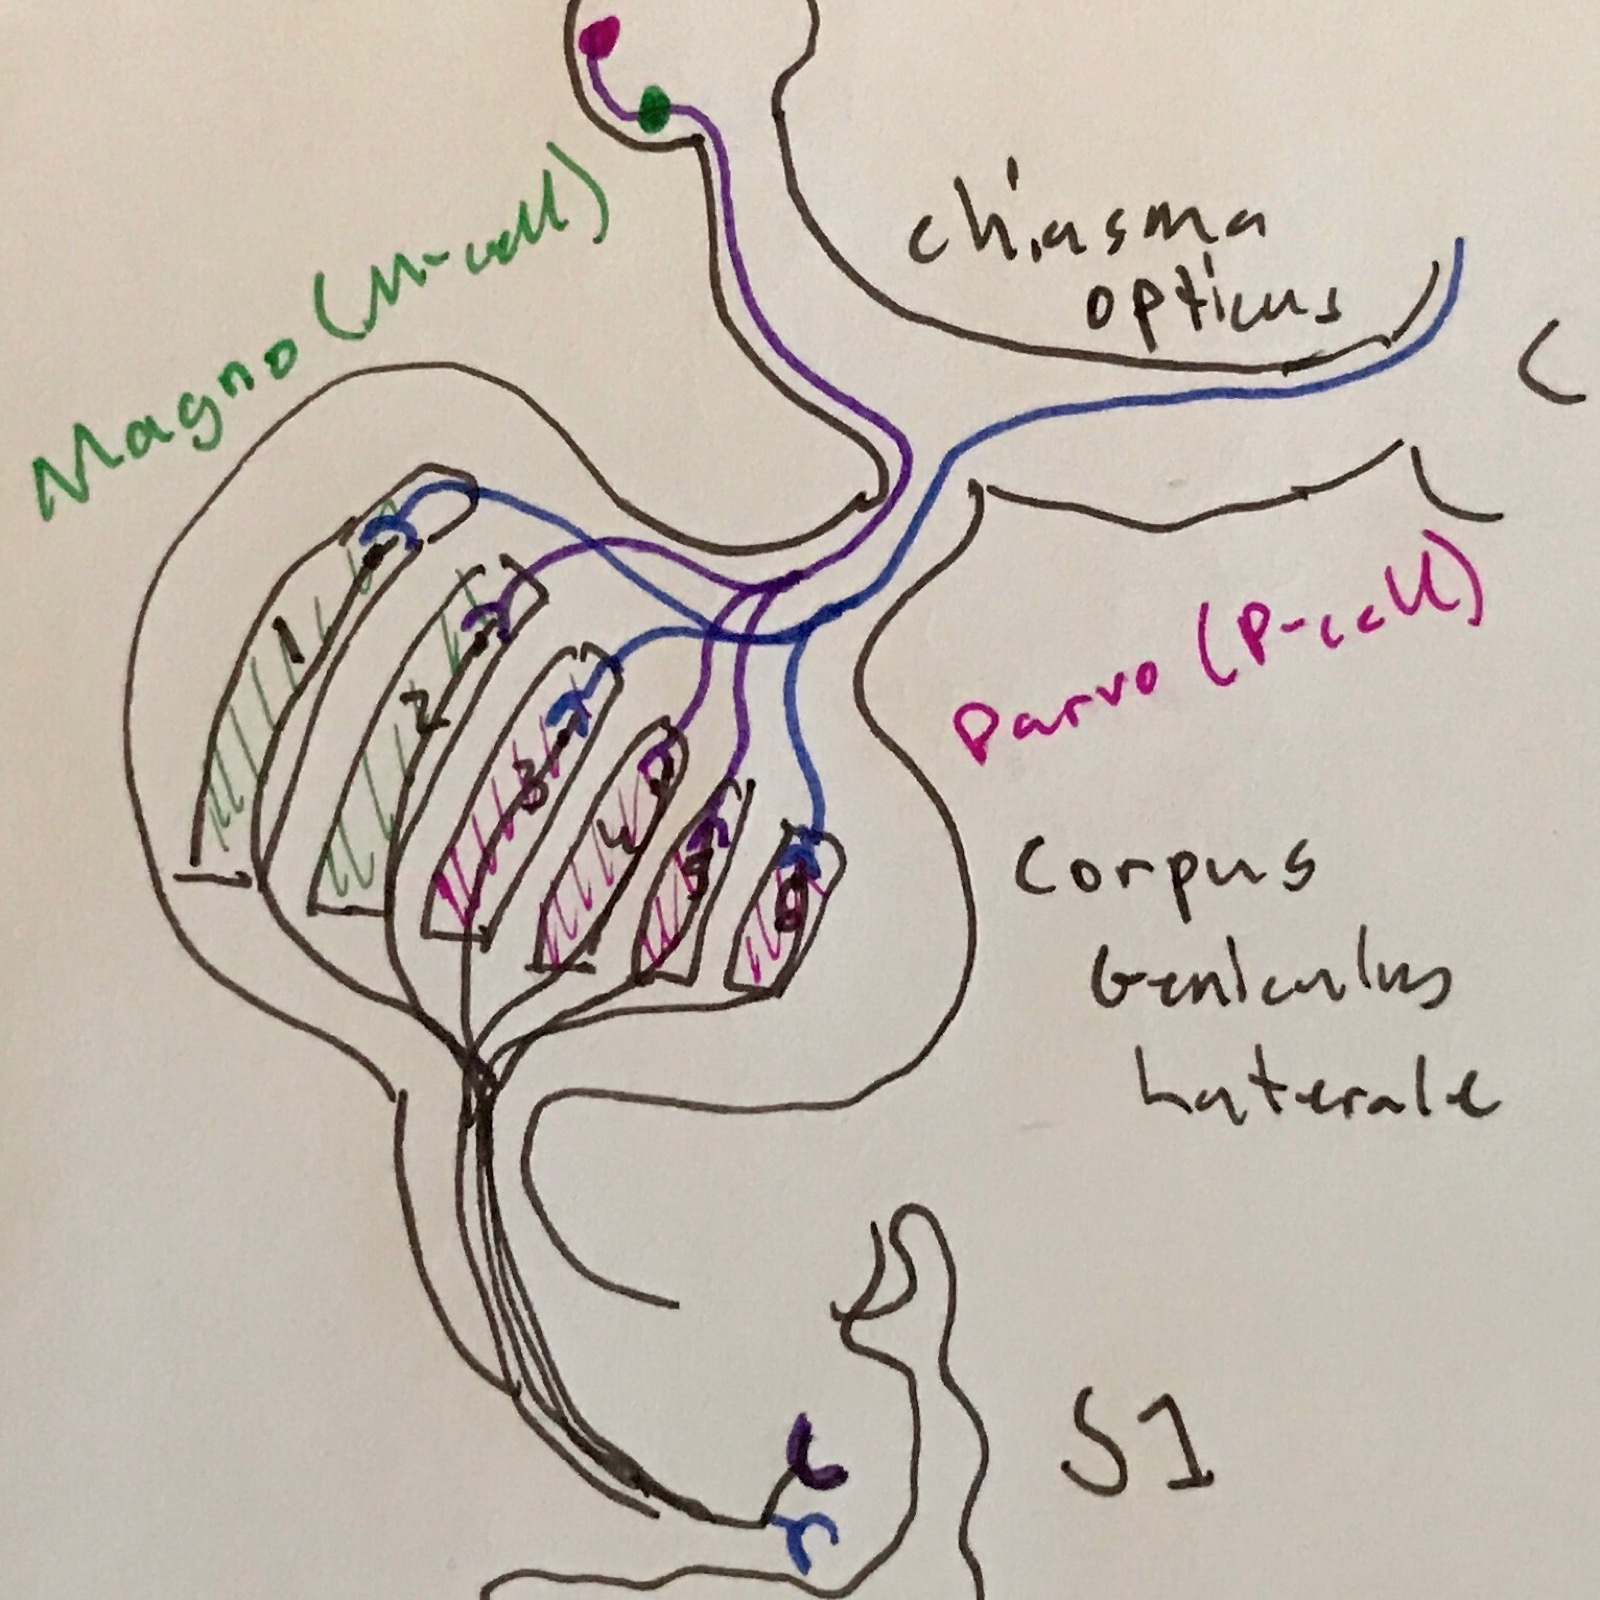 Magno (M-cell)
chiasma
opticus
Parvo (P-cell)
1
2
3
4
5
6
Corpus
Geniculus
Laterale
S1